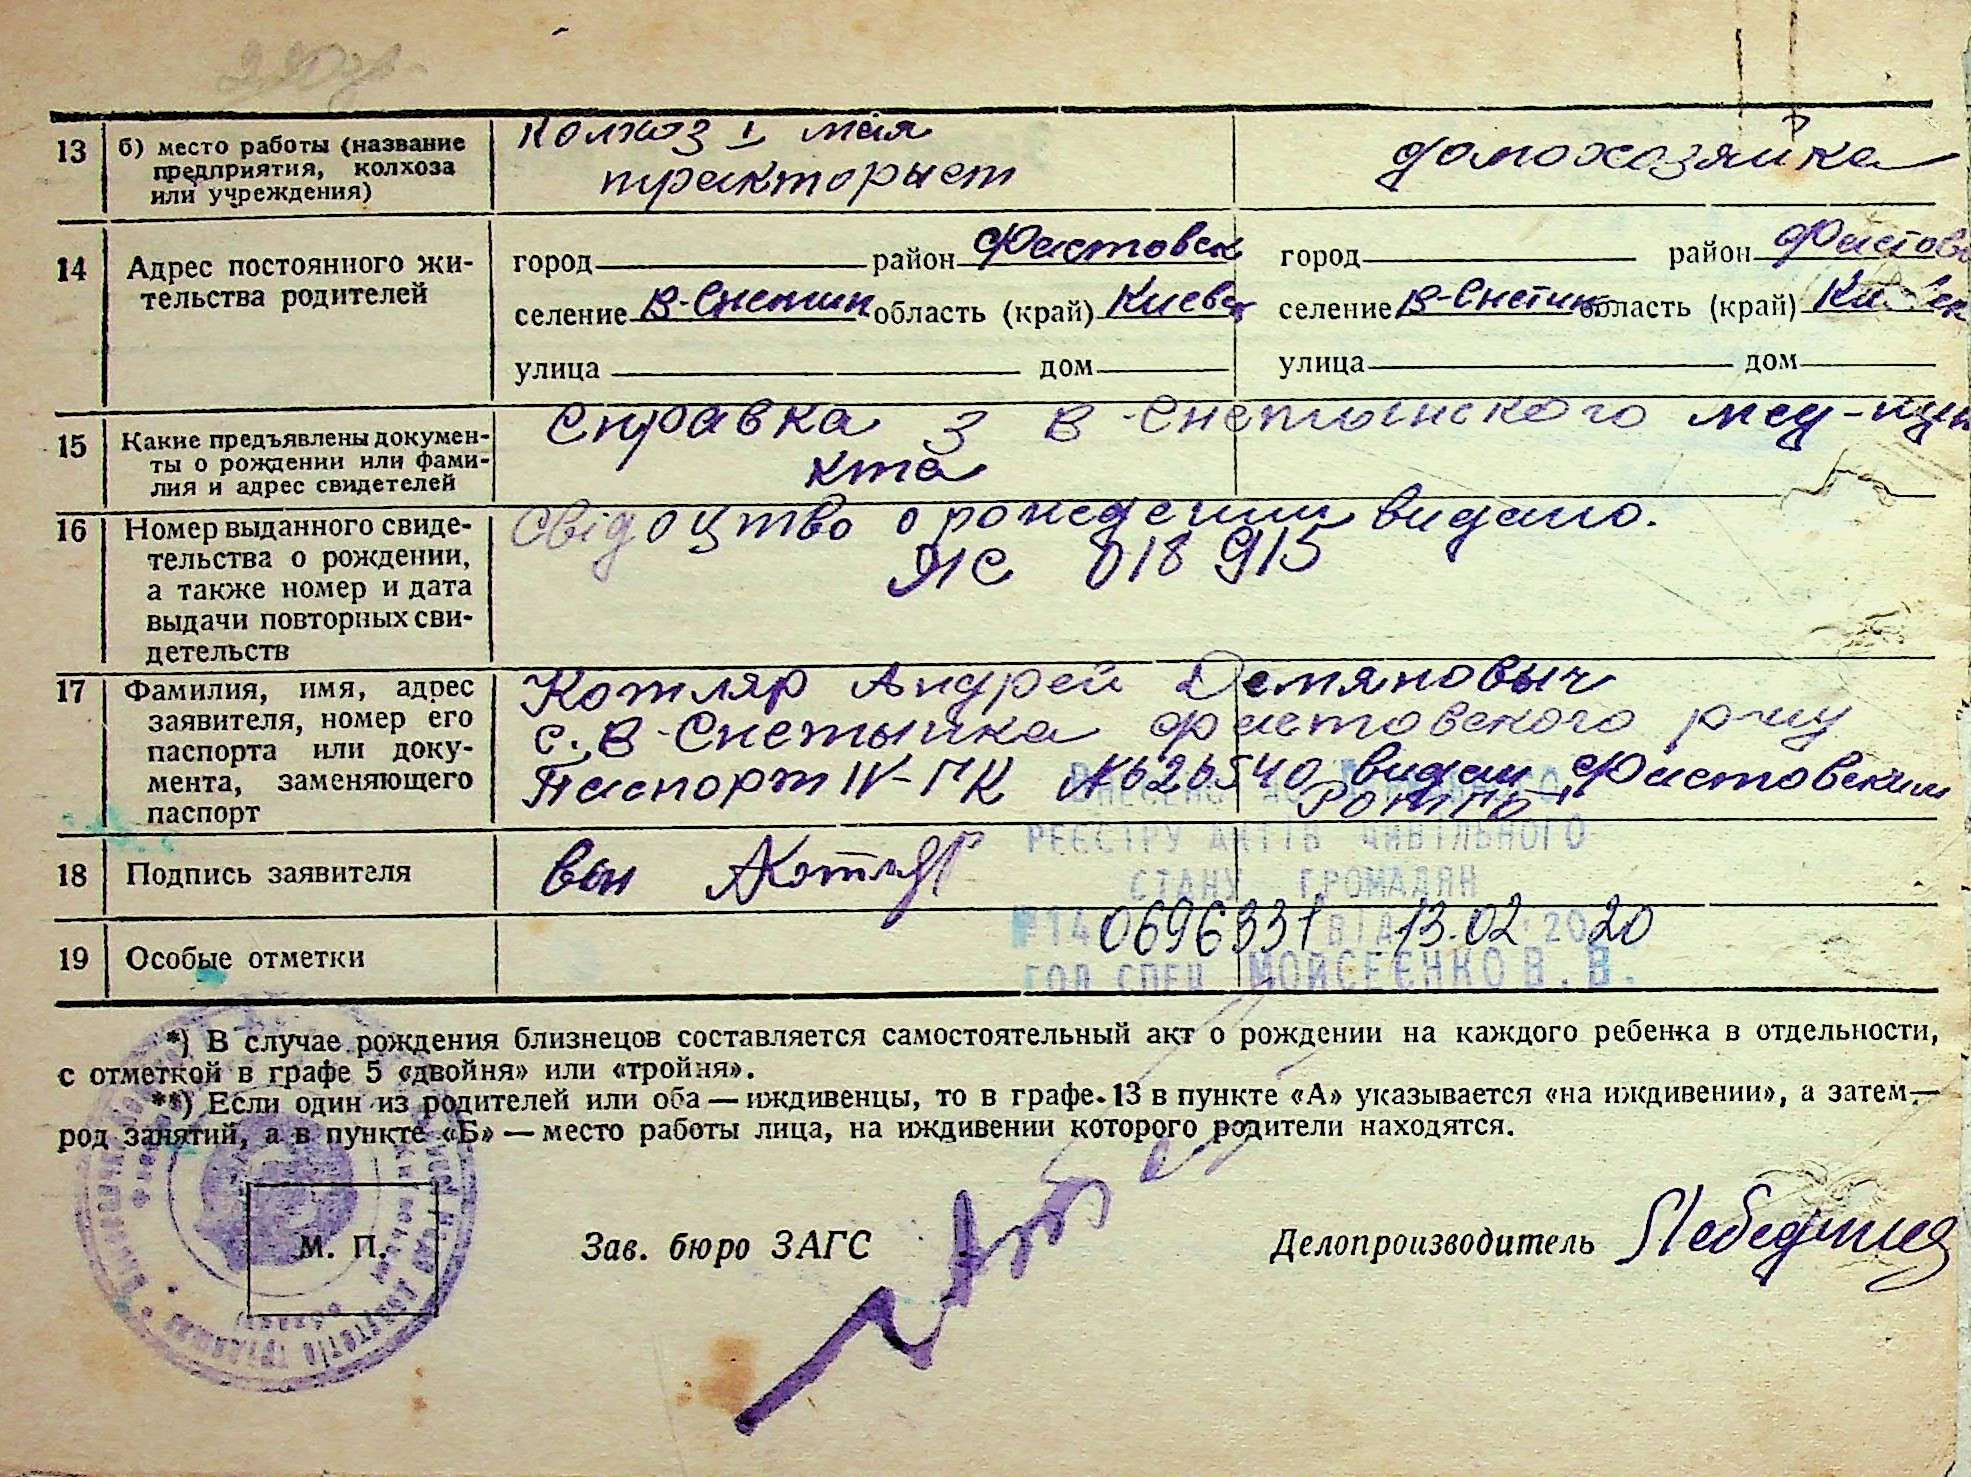 13 б) место работы (название предприятия, колхоза или учреждения)
Колхоз I мая
тракторыст
домохозяйка
14 Адрес постоянного жительства родителей
город район Фастовск
селение В-Снетин область (край) Киевск
улица дом
город район Фастовс
селение В-Снетин область (край) Киевск
улица дом
15 Какие предъявлены документы о рождении или фамилия и адрес свидетелей
Справка з В-Снетынского мед-пун
кта
16 Номер выданного свидетельства о рождении, а также номер и дата выдачи повторных свидетельств
Свідоцтво о рождении видано.
ЯС 018915
17 Фамилия, имя, адрес заявителя, номер его паспорта или документа, заменяющего паспорт
Котляр Андрей Демяновыч
с. В-Снетынка Фастовского р-ну
Паспорт IV-ГК №626540 видан Фастовским
ВНЕСЕНО ДО ДЕРЖАВНОГО
РЕЄСТРУ АКТІВ ЦИВІЛЬНОГО
СТАНУ ГРОМАДЯН
18 Подпись заявителя
АКотляр
№14 0696331 ВІД 13.02 2020
19 Особые отметки
ГОЛ СПЕЦ МОЙСЕЄНКО В. В.
*) В случае рождения близнецов составляется самостоятельный акт о рождении на каждого ребенка в отдельности,
с отметкой в графе 5 «двойня» или «тройня».
**) Если один из родителей или оба — иждивенцы, то в графе 13 в пункте «А» указывается «на иждивении», а затем —
род занятий, а в пункте «Б» — место работы лица, на иждивении которого родители находятся.
М. П.
Зав. бюро ЗАГС
Делопроизводитель